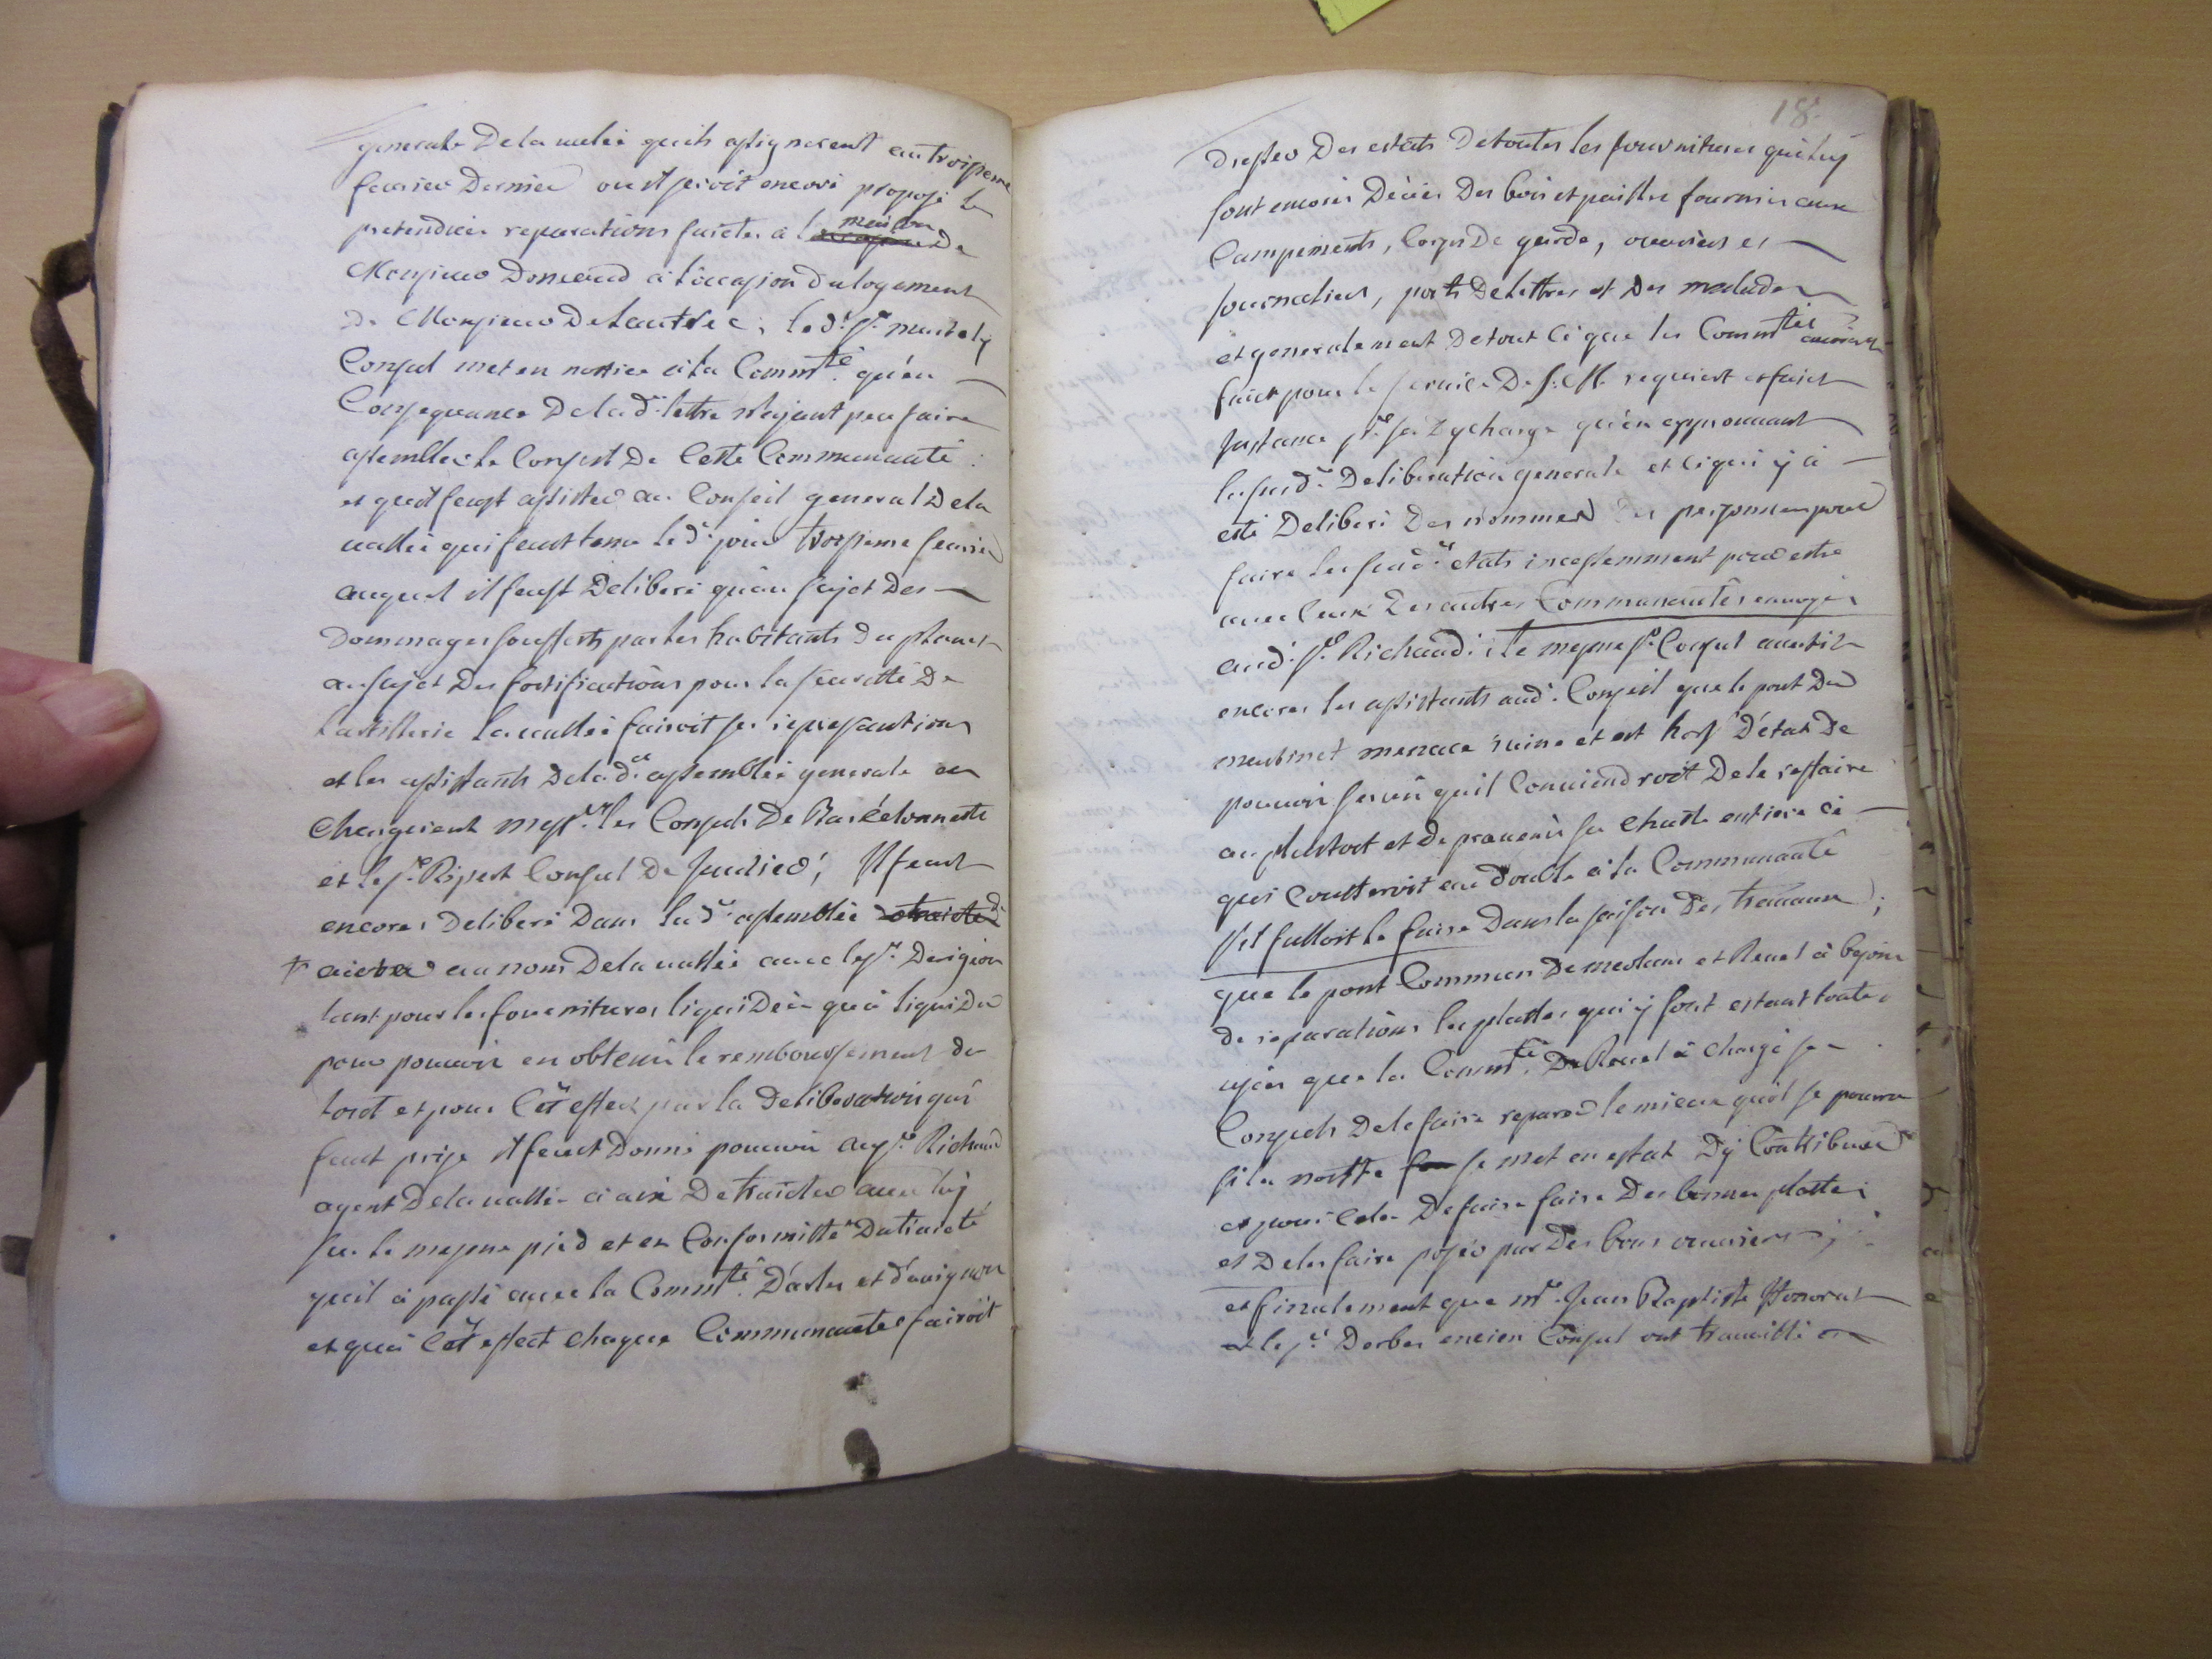 generale De la vallée quils assignerent au troisieme
feuvrier Dernier ou il seroit encore proposé les
pretendües reparations faictes à la maison De
Monsieur Donneaud à loccasion du logement
de Monsieur De Lautrec; le d.t s.r
Consul met en nottice à la Comm.té qu'en
Consequance De la d.te lettre n'ayant peu faire
assembler le Conseil De Ceste Communauté
et quil feust assister au Conseil general De la
vallée qui feust tenu le d.t jour troisieme feuvrier
auquel il feust Deliberé qu'au sujet Des
Dommages soufferts par les habitants Du
au sujet Des fortifications pour la seuretté De
Lartillerie la vallée fairoit ses represantations
et les assistants De la d.te assemblée generale en
Chargerent mess.rs les Consuls De Barcelonnette
et le s.r Ripert Consul De Jausiers; Il feust
encores Deliberé Dans la d.te assemblée
au nom De la vallée avec le s.r
tant pour les fournitures liquidées qu'à liquider
pour pouvoir en obtenir le remboursement du
tout et pour Cet effect par la Deliberation qui
feust prise il feust Donné pouvoir au s.r Richaud
agent De la vallée à aix De traicter avec luy
sur le mesme pied et en Conformitté Du traicté
quil à passé avec la Comm.té D'arles et d'avignon
et qu'à Cet effect chaque Communautés fairoit
18
Dresser Des estats De toutes les fournitures qui luy
sont encores Deües Des bois et pailles fournies aux
Campements, Corps De garde, ouvriers et
Journaliers, ports De lettres et Des malades
et generalement De tout Ce que les Comm.tés auroient
faict pour le service De S. M. requiert et faict
Instance p.r sa Dy charge qu'en approuvant
la susd.te Deliberation generale et Ce qui y à
esté Deliberé Des nommer Des personnes pour
faire les susd.ts etats incessemment pour estre
avec Ceux Des autres Communautés envoyés
aud.t s.r Richaud; Le mesme s.r Consul avertit
encores les assistants aud.t Conseil que le pont Du
menace ruine et est hors D'état De
pouvoir servir quil Conviendroit De le reffaire
au plustost et De prevenir sa Chutte entiere Ce
qui Coutteroit au double à la Communauté
s'il falloit le faire Dans la saison Des travaux;
que le pont Commun De meolans et Revel à besoin
de reparations les plattes qui y sont estant toutes
usées que la Comm.té De Revel à Chargé ses
Consuls De le faire reparer le mieux quil se pourra
si la nostre se met en estat Dy Contribuer
et pour Cela De faire faire Des bonnes plattes
et De les faire poser par Des bons ouvriers;
et finalement que m.e Jean Baptiste Honorat
et le s.r Derbes encien Consul ont travaillé en